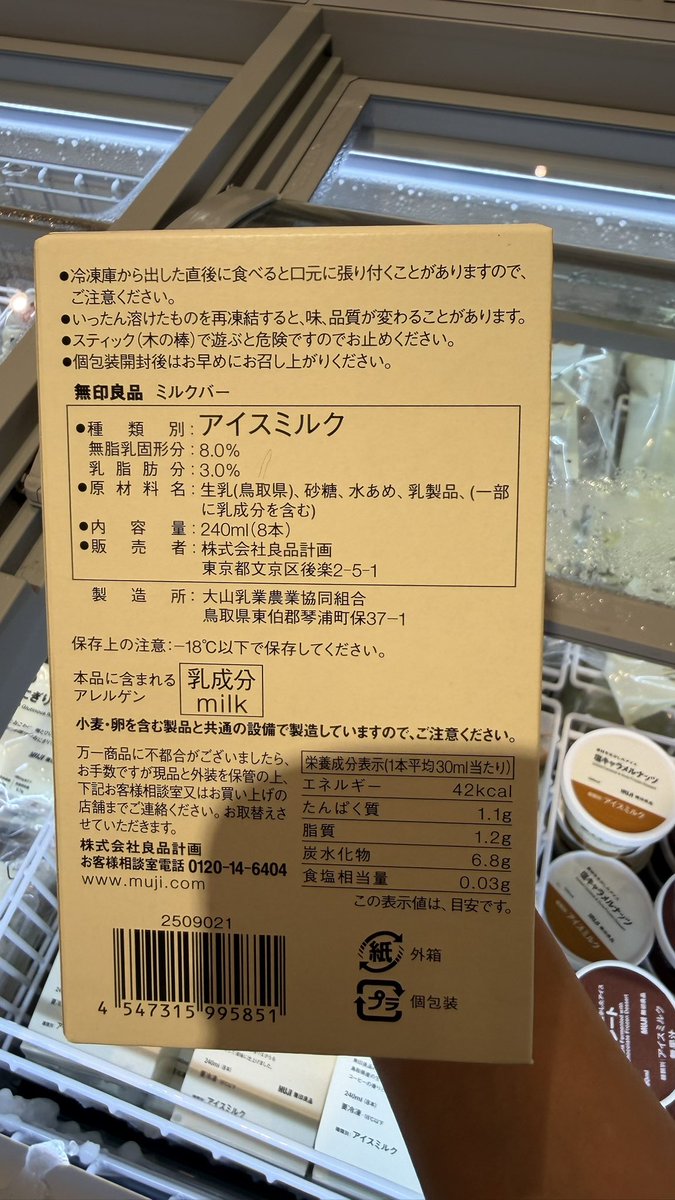 ●冷凍庫から出した直後に食べると口元に張り付くことがありますので、
ご注意ください。
●いったん溶けたものを再凍結すると、味、品質が変わることがあります。
●スティック(木の棒)で遊ぶと危険ですのでお止めください。
●個包装開封後はお早めにお召し上がりください。
無印良品 ミルクバー
●種類別:アイスミルク
無脂乳固形分:8.0%
乳脂肪分:3.0%
●原材料名:生乳(鳥取県)、砂糖、水あめ、乳製品、(一部
に乳成分を含む)
●内容量:240ml(8本)
●販売者:株式会社良品計画
東京都文京区後楽2-5-1
製造所:大山乳業農業協同組合
鳥取県東伯郡琴浦町保37-1
保存上の注意:-18℃以下で保存してください。
本品に含まれる
アレルゲン
乳成分
milk
小麦・卵を含む製品と共通の設備で製造していますので、ご注意ください。
万一商品に不都合がございましたら、
お手数ですが現品と外装を保管の上、
下記お客様相談室又はお買い上げの
店舗までご連絡ください。お取替えさ
せていただきます。
株式会社良品計画
お客様相談室電話 0120-14-6404
www.muji.com
栄養成分表示(1本平均30ml当たり)
エネルギー 42kcal
たんぱく質 1.1g
脂質 1.2g
炭水化物 6.8g
食塩相当量 0.03g
この表示値は、目安です。
2509021
4 547315 995851
紙 外箱
プラ 個包装
塩キャラメルナッツ
MUJI 無印良品
アイスミルク
塩キャラメルナッツ
アイスミルク
MUJI 無印良品
アイスミルク
240ml (8本)
MUJI 無印良品
アイスミルク
240ml (8本)
アイスミルク